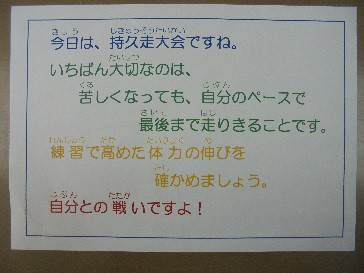 今日は、持久走大会ですね。
いちばん大切なのは、
苦しくなっても、自分のペースで
最後まで走りきることです。
練習で高めた体力の伸びを
確かめましょう。
自分との戦いですよ！